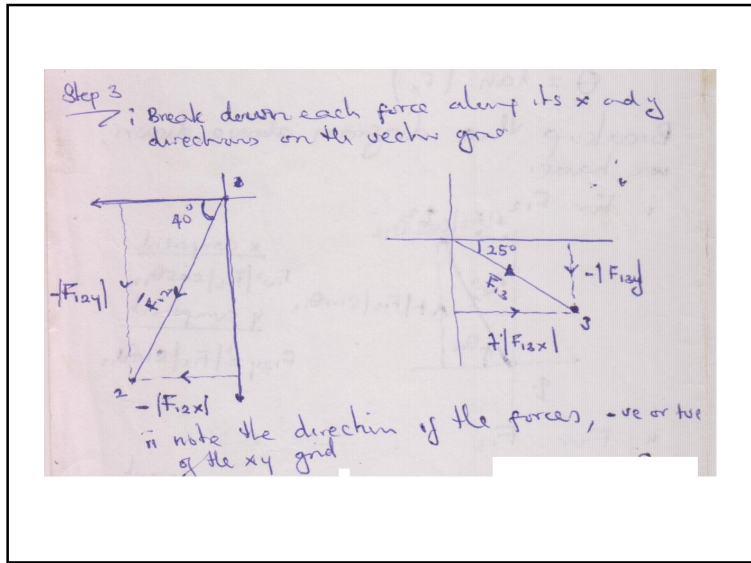 Step 3
i Break down each force along its x and y
directions on the vector grid
1
40°
-|F12y|
F12
2
-|F12x|
25°
F13
-|F13y|
3
+|F13x|
ii note the direction of the forces, -ve or +ve
of the xy grid